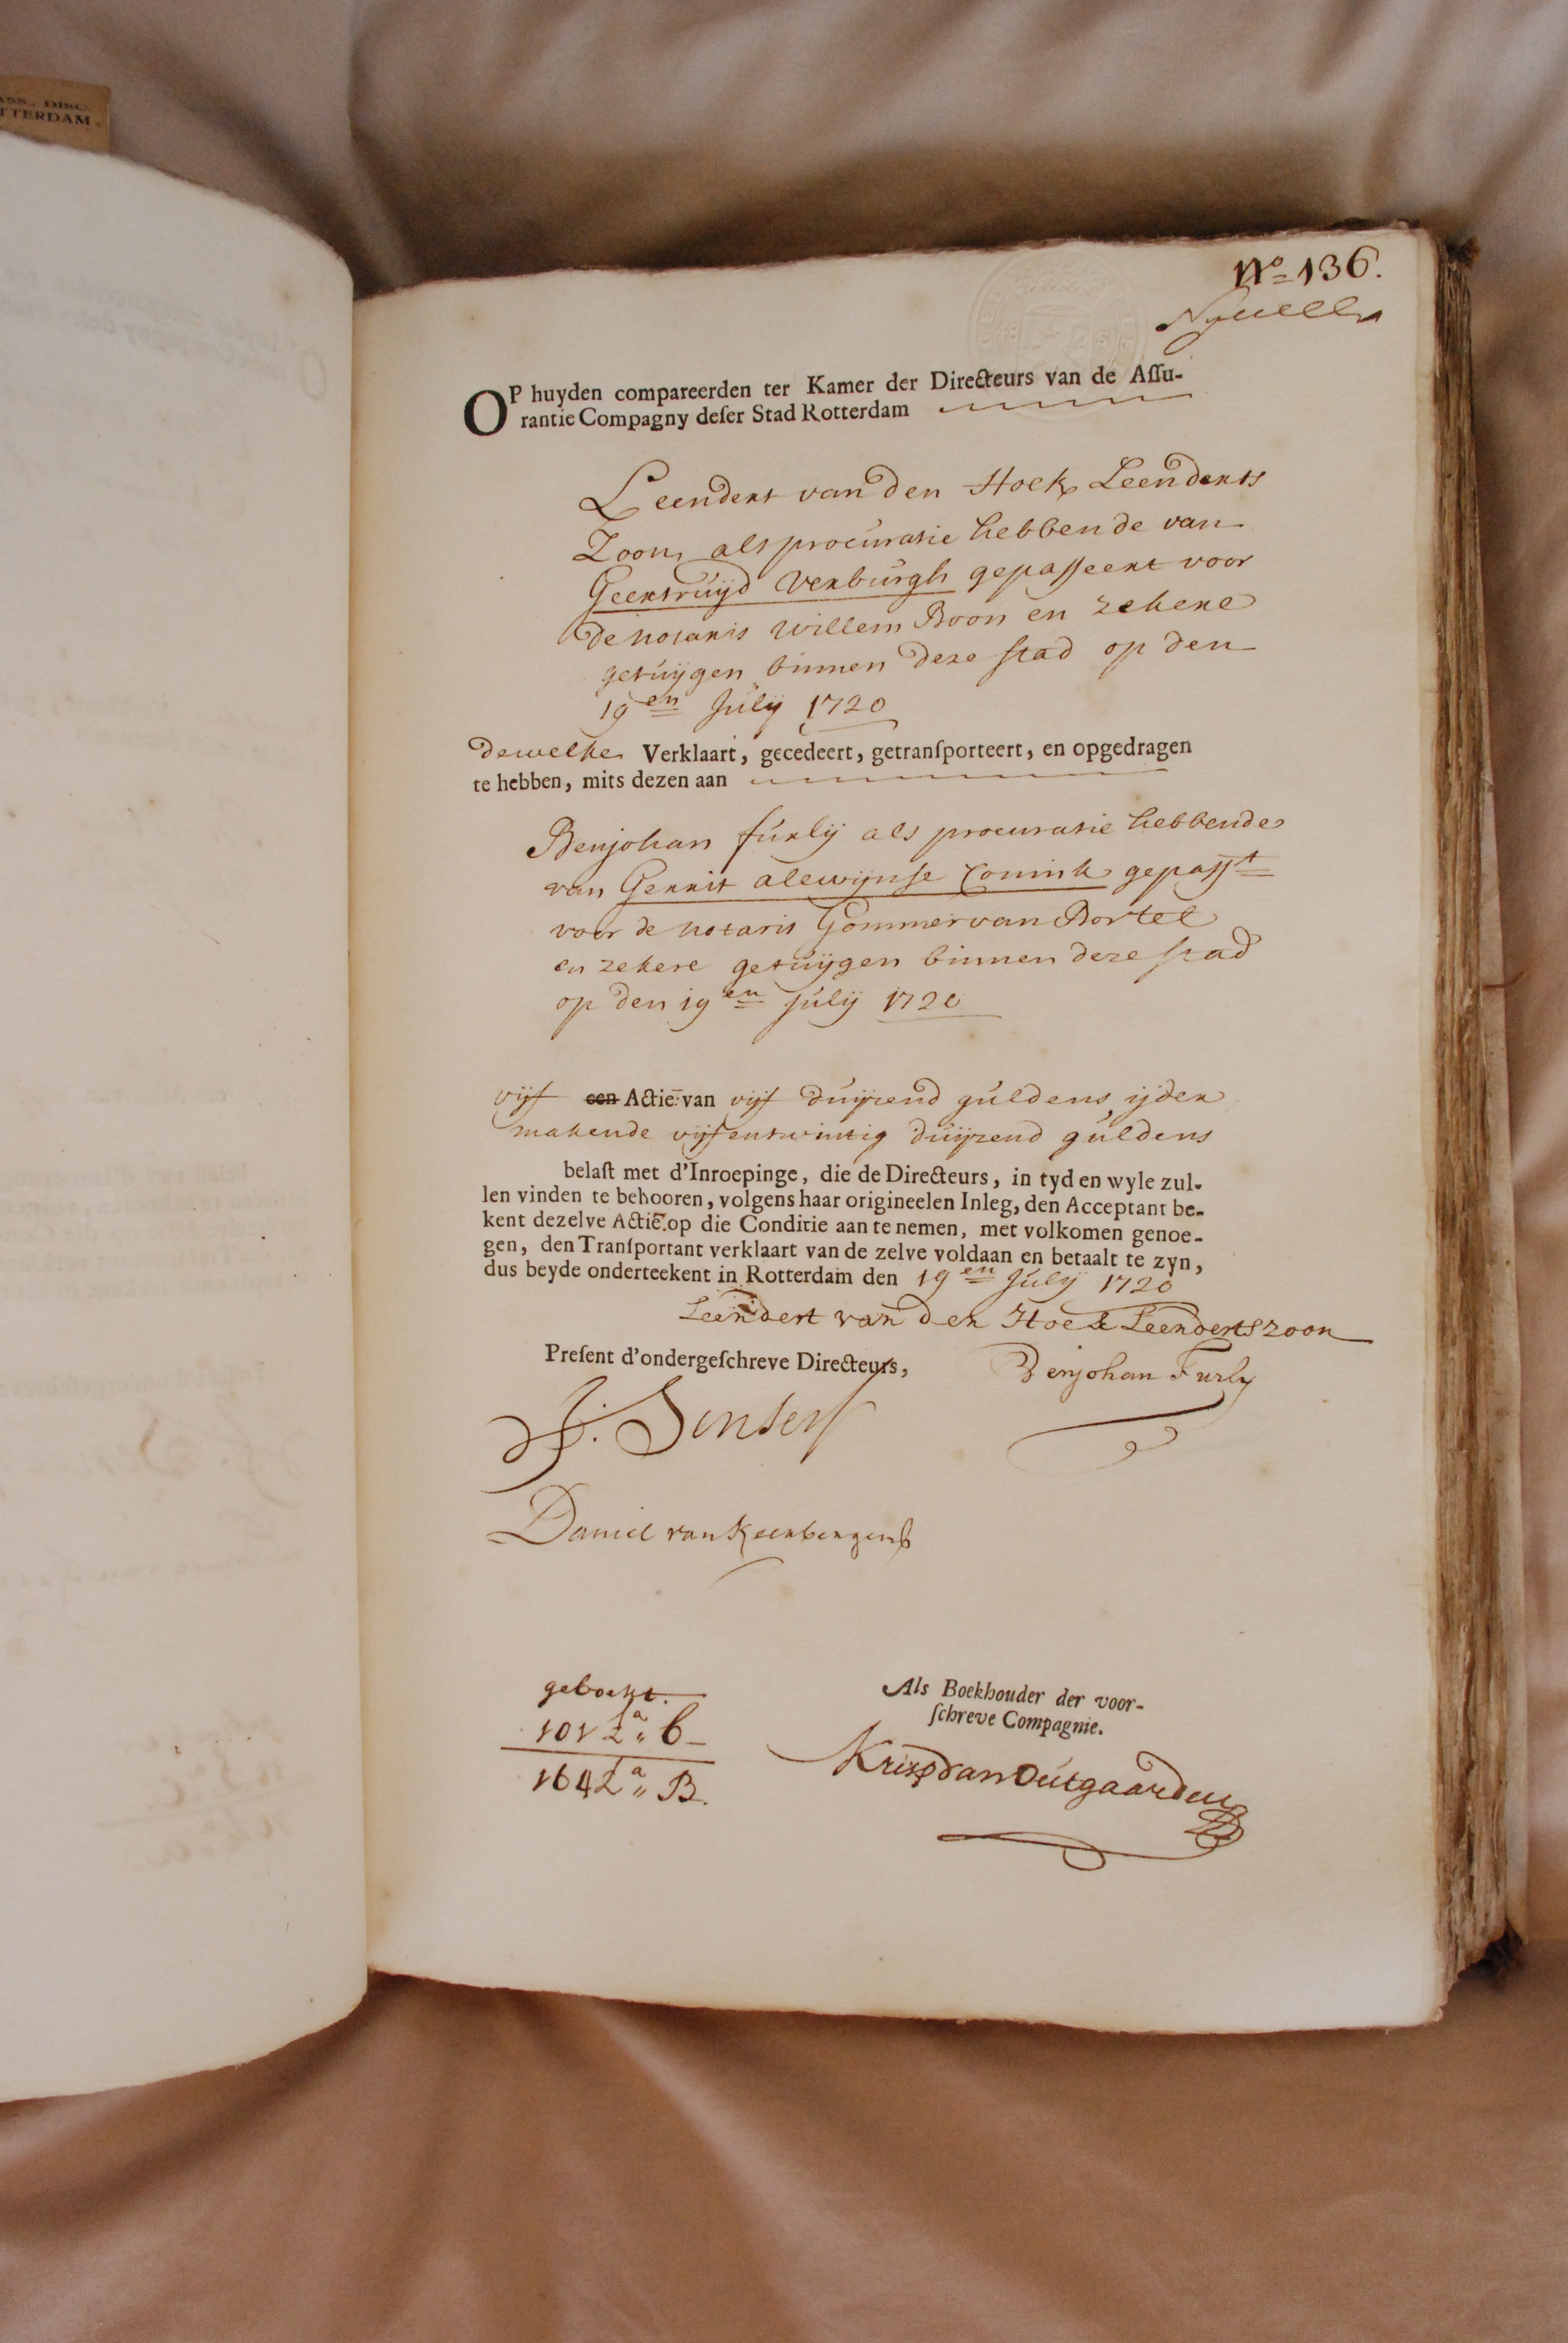 ASS. DISC.
TTERDAM
No 136.
OP huyden compareerden ter Kamer der Directeurs van de Assu-
rantie Compagny deser Stad Rotterdam
Leendert van den Hoek Leenderts
Zoon, als procuratie hebbende van
Geertruijd Verburgh gepasseert voor
de notaris Willem Boon en zekere
getuijgen binnen deze stad op den
19en Julij 1720
dewelke Verklaart, gecedeert, getransporteert, en opgedragen
te hebben, mits dezen aan
Benjohan furlij als procuratie hebbende
van Gerrit alewijnse Connink gepasst
voor de notaris Gommer van Bortel
en zekere getuijgen binnen deze stad
op den 19en Julij 1720
vijf een Actie: van vijf duijzend guldens ijder
makende vijfentwintig duijzend guldens
belast met d'Inroepinge, die de Directeurs, in tyd en wyle zul-
len vinden te behooren, volgens haar origineelen Inleg, den Acceptant be-
kent dezelve Actie. op die Conditie aan te nemen, met volkomen genoe-
gen, den Transportant verklaart van de zelve voldaan en betaalt te zyn,
dus beyde onderteekent in Rotterdam den 19en Julij 1720
Leendert van den Hoek Leendertszoon
Present d'ondergeschreve Directeurs,
Benjohan Furly
Daniel van
geboekt.
101 La" C
164 La" B.
Als Boekhouder der voor-
schreve Compagnie.